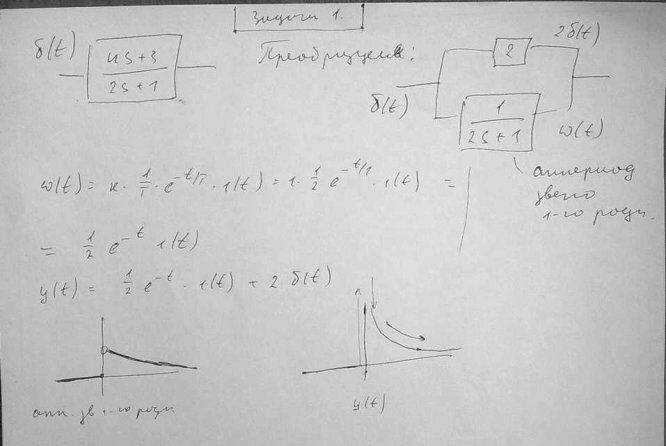 Задача 1.
δ(t)
4s+3
2s+1
Преобразуем:
2
2δ(t)
δ(t)
1
2s+1
ω(t)
апериод
звено
1-го
ω(t) = к · 1/T · e^{-t/T} · 1(t) = 1 · 1/2 e^{-t/1} · 1(t) =
= 1/2 e^{-t} 1(t)
y(t) = 1/2 e^{-t} · 1(t) + 2 δ(t)
зв 1-го
y(t)